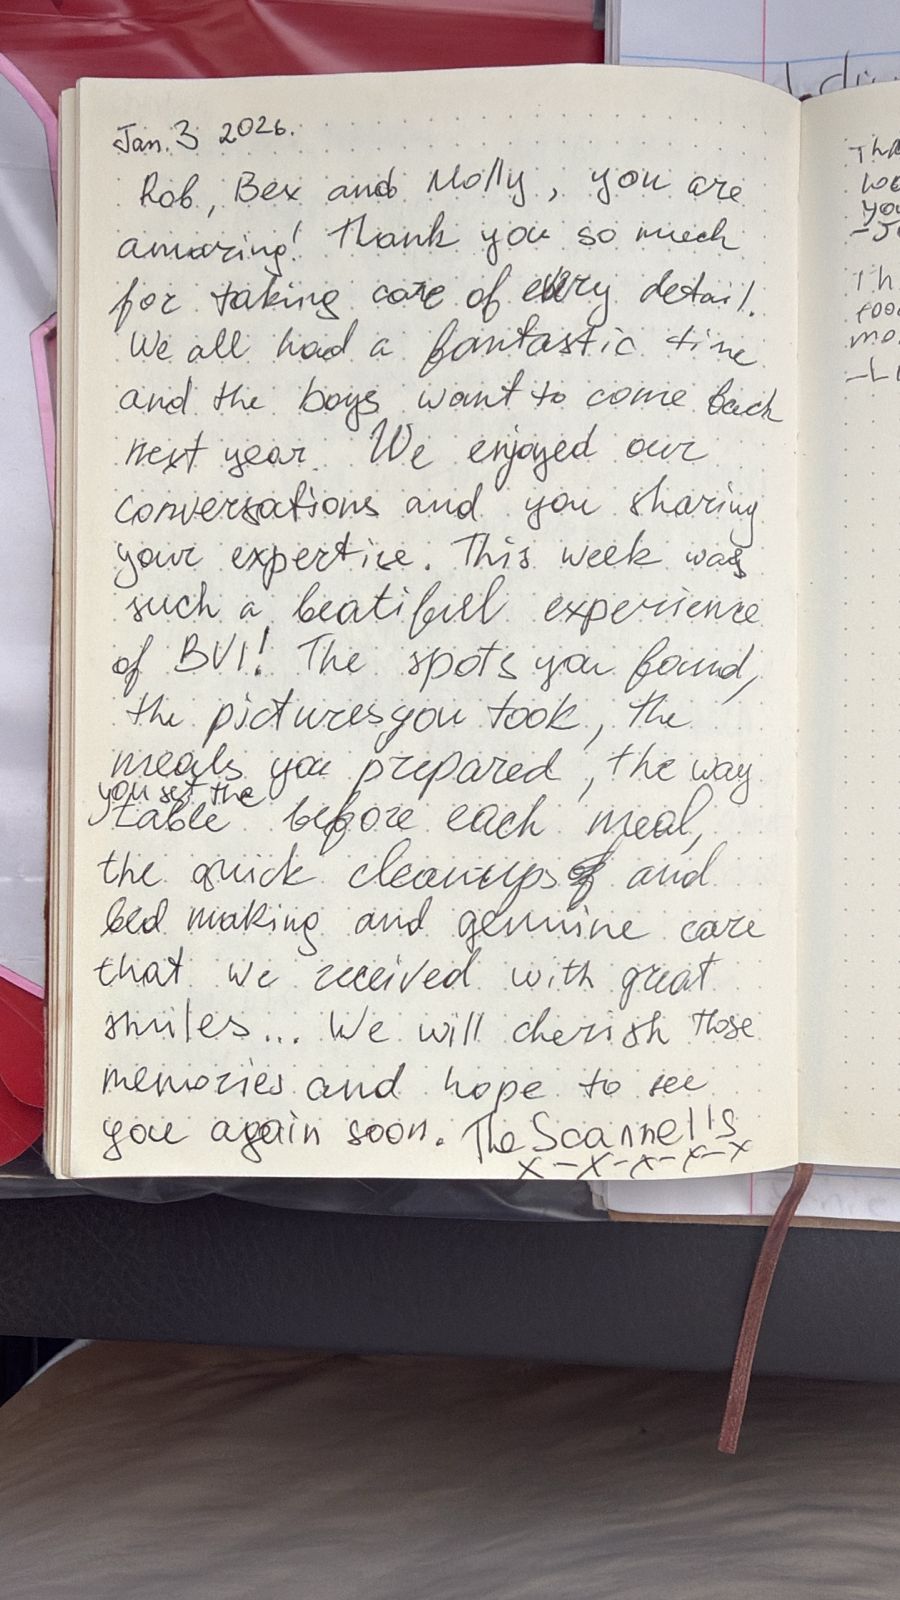 Jan. 3 2026.
Rob, Bex and Molly, you are
amazing! Thank you so much
for taking care of every detail.
We all had a fantastic time
and the boys want to come back
next year. We enjoyed our
conversations and you sharing
your expertise. This week was
such a beatifull experience
of BVI! The spots you found,
the pictures you took, the
meals you prepared, the way
you set the
table before each meal,
the quick cleanups and
bed making and genuine care
that we received with great
smiles... We will cherish those
memories and hope to see
you again soon. The Scannells
x-x-x-x-x
Th
foo
mo